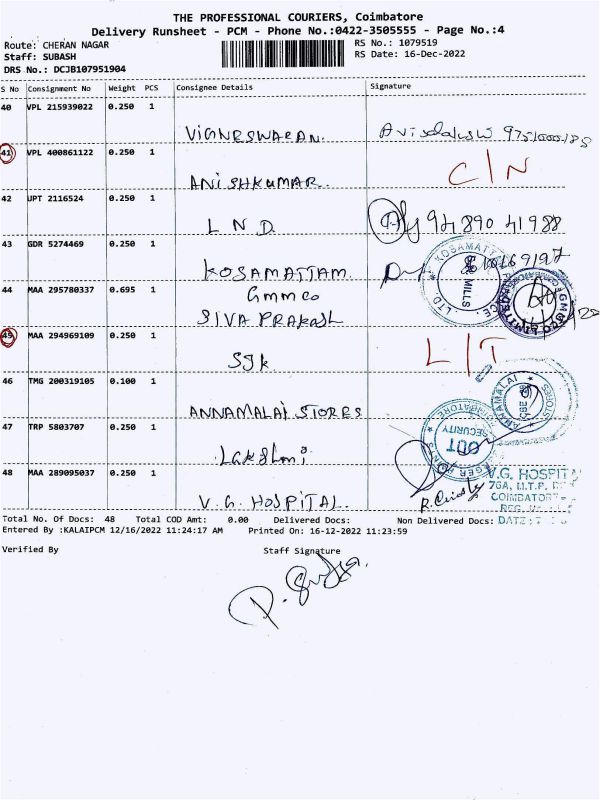 THE PROFESSIONAL COURIERS, Coimbatore
Delivery Runsheet - PCM - Phone No.:0422-3505555 - Page No.:4
Route: CHERAN NAGAR RS No.: 1079519
Staff: SUBASH RS Date: 16-Dec-2022
DRS No.: DCJB107951904
S No Consignment No Weight PCS Consignee Details Signature
40 VPL 215939022 0.250 1
VIGNESWARAN.
41 VPL 400861122 0.250 1
ANISHKUMAR. C/N
42 UPT 2116524 0.250 1
L N D. 94 890 41988
43 GDR 5274469 0.250 1
KOSAMATTAM.
44 MAA 295780337 0.695 1
Gmmco
SIVA PRAKASH
45 MAA 294969109 0.250 1
SJK. L/T
46 TMG 200319105 0.100 1
ANNAMALAI STORES
47 TRP 5803707 0.250 1
Lakshmi
48 MAA 289095037 0.250 1
V.G. HOSPITAL.
KOSAMATTAM
MILLS
LTD
GMMCO LIMITED
ANNAMALAI STORES
SECURITY
OUT
V.G. HOSPITAL
76A, M.T.P.
COIMBATORE
Total No. Of Docs: 48 Total COD Amt: 0.00 Delivered Docs: Non Delivered Docs: DATE:
Entered By :KALAIPCM 12/16/2022 11:24:17 AM Printed On: 16-12-2022 11:23:59
Verified By Staff Signature